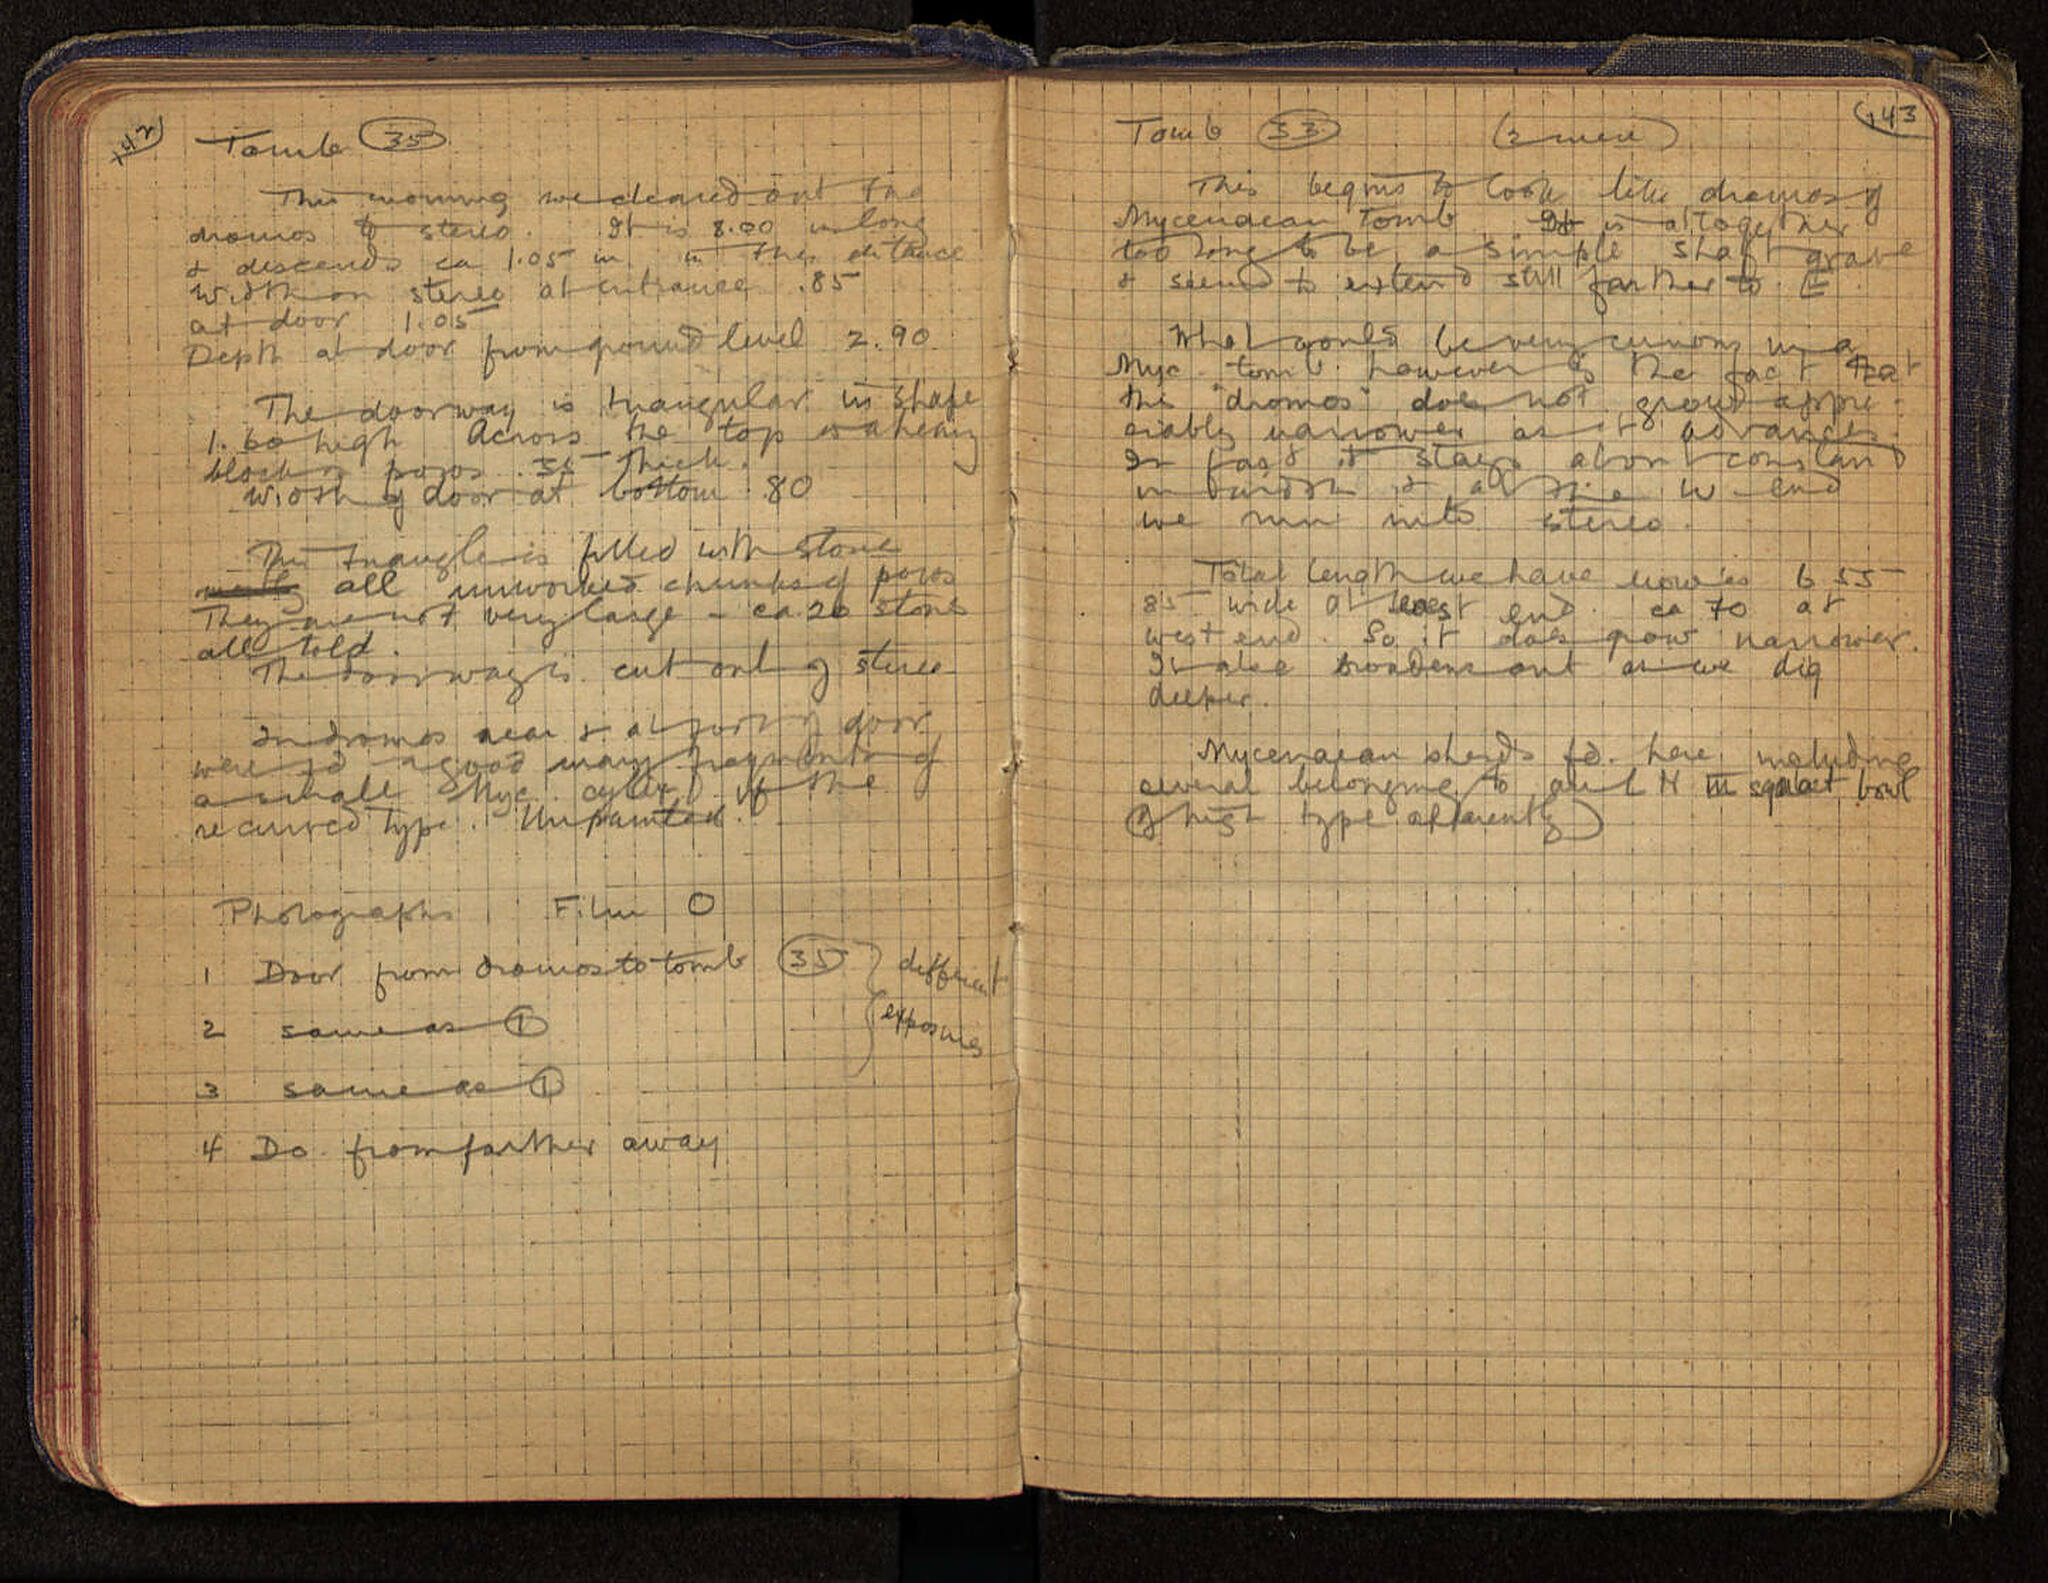 142
Tomb 35
This morning we cleared out the
dromos to stereo. It is 8.00 m long
& descends ca 1.05 m in this distance
width on stereo at entrance .85
at door 1.05
Depth at door from ground level 2.90
The doorway is triangular in shape
1.60 high Across the top is a heavy
block of poros .35 thick.
Width of door at bottom .80
This triangle is filled with stone
mostly all unworked chunks of poros
They are not very large - ca. 20 stones
all told.
The doorway is cut out of stereo
In dromos near & at foot of door
were fd a good many fragments of
a small Myc. cylix of the
recurved type. Unpainted.
Photographs Film O
1 Door from dromos to tomb 35 different
2 same as 1 exposures
3 same as 1
4 Do. from farther away
143
Tomb 53 (2 men)
This begins to look like dromos of
Mycenaean tomb It is altogether
too long to be a simple shaft grave
& seems to extend still farther to E.
What would be very curious in a
Myc. tomb however is the fact that
this "dromos" does not grow appre-
ciably narrower as it advances.
In fact it stays about constant
in width & at the W end
we run into stereo.
Total length we have now is 6.55
85 wide at east end. ca 70 at
west end. So it does grow narrower.
It also broadens out as we dig
deeper.
Mycenaean sherds fd. here including
several belonging to a LH III squat bowl
(of high type apparently)